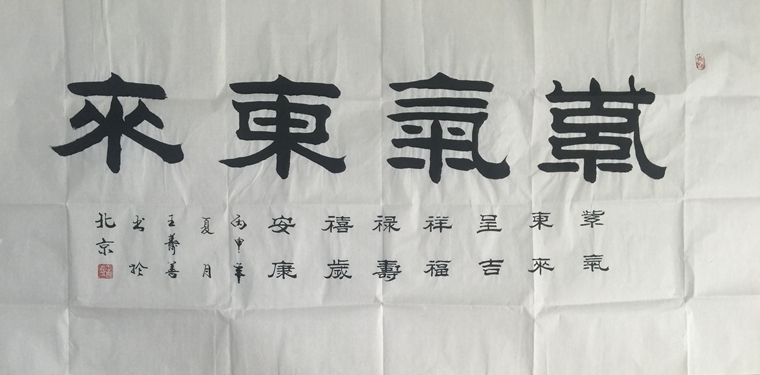 紫氣東來
紫氣
東來
呈吉
祥福
禄壽
禧歲
安康
丙申年
夏月
王壽善
书於
北京